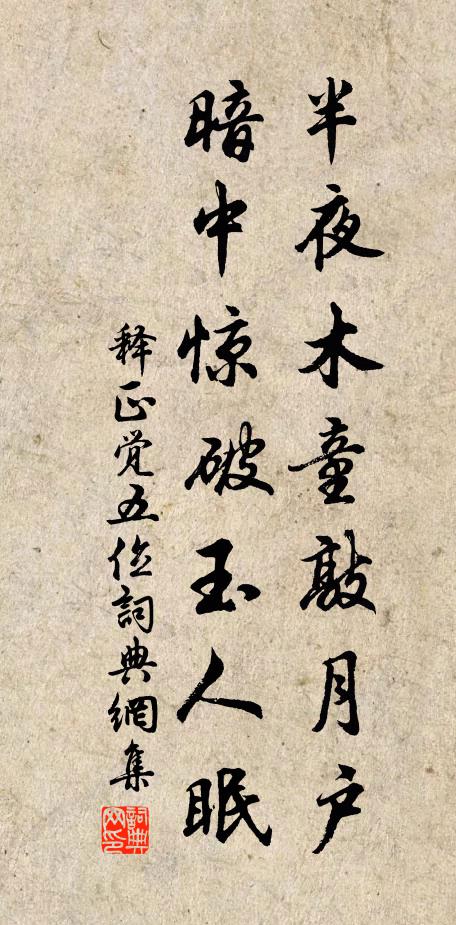 半夜木童敲月户
暗中惊破玉人眠
释正觉五位詞典網集
詞典网印